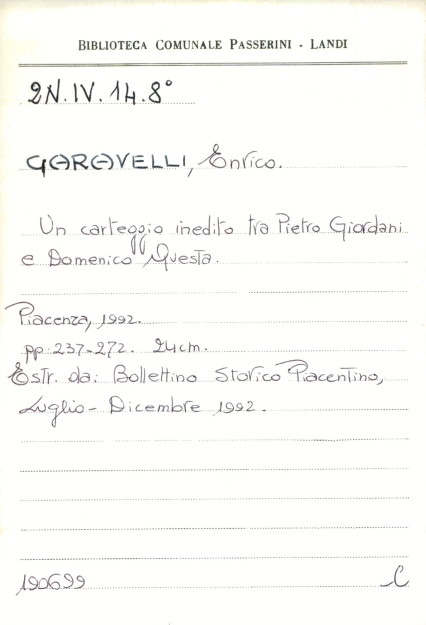 BIBLIOTECA COMUNALE PASSERINI - LANDI
2N.IV.14.8°
GARAVELLI, Enrico.
Un carteggio inedito tra Pietro Giordani
e Domenico Questa.
Piacenza, 1992.
pp. 237-272. 24cm.
Estr. da: Bollettino Storico Piacentino,
Luglio - Dicembre 1992.
190699
C